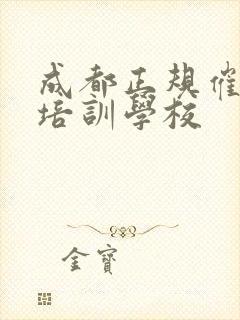 成都正规催
培訓學校
金寶